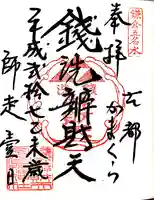 鎌倉五名水
奉拝
古都
かまくら
銭洗辨財天
二千成弐拾七乙未歳
師走壹日